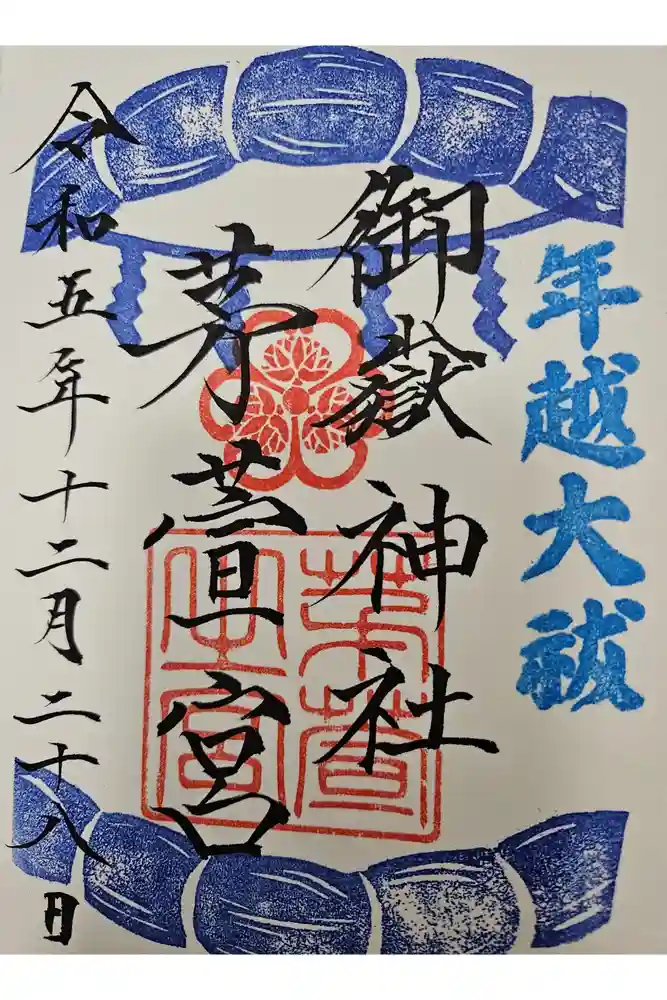 年越大祓
御嶽神社
茅萱宮
令和五年十二月二十八日